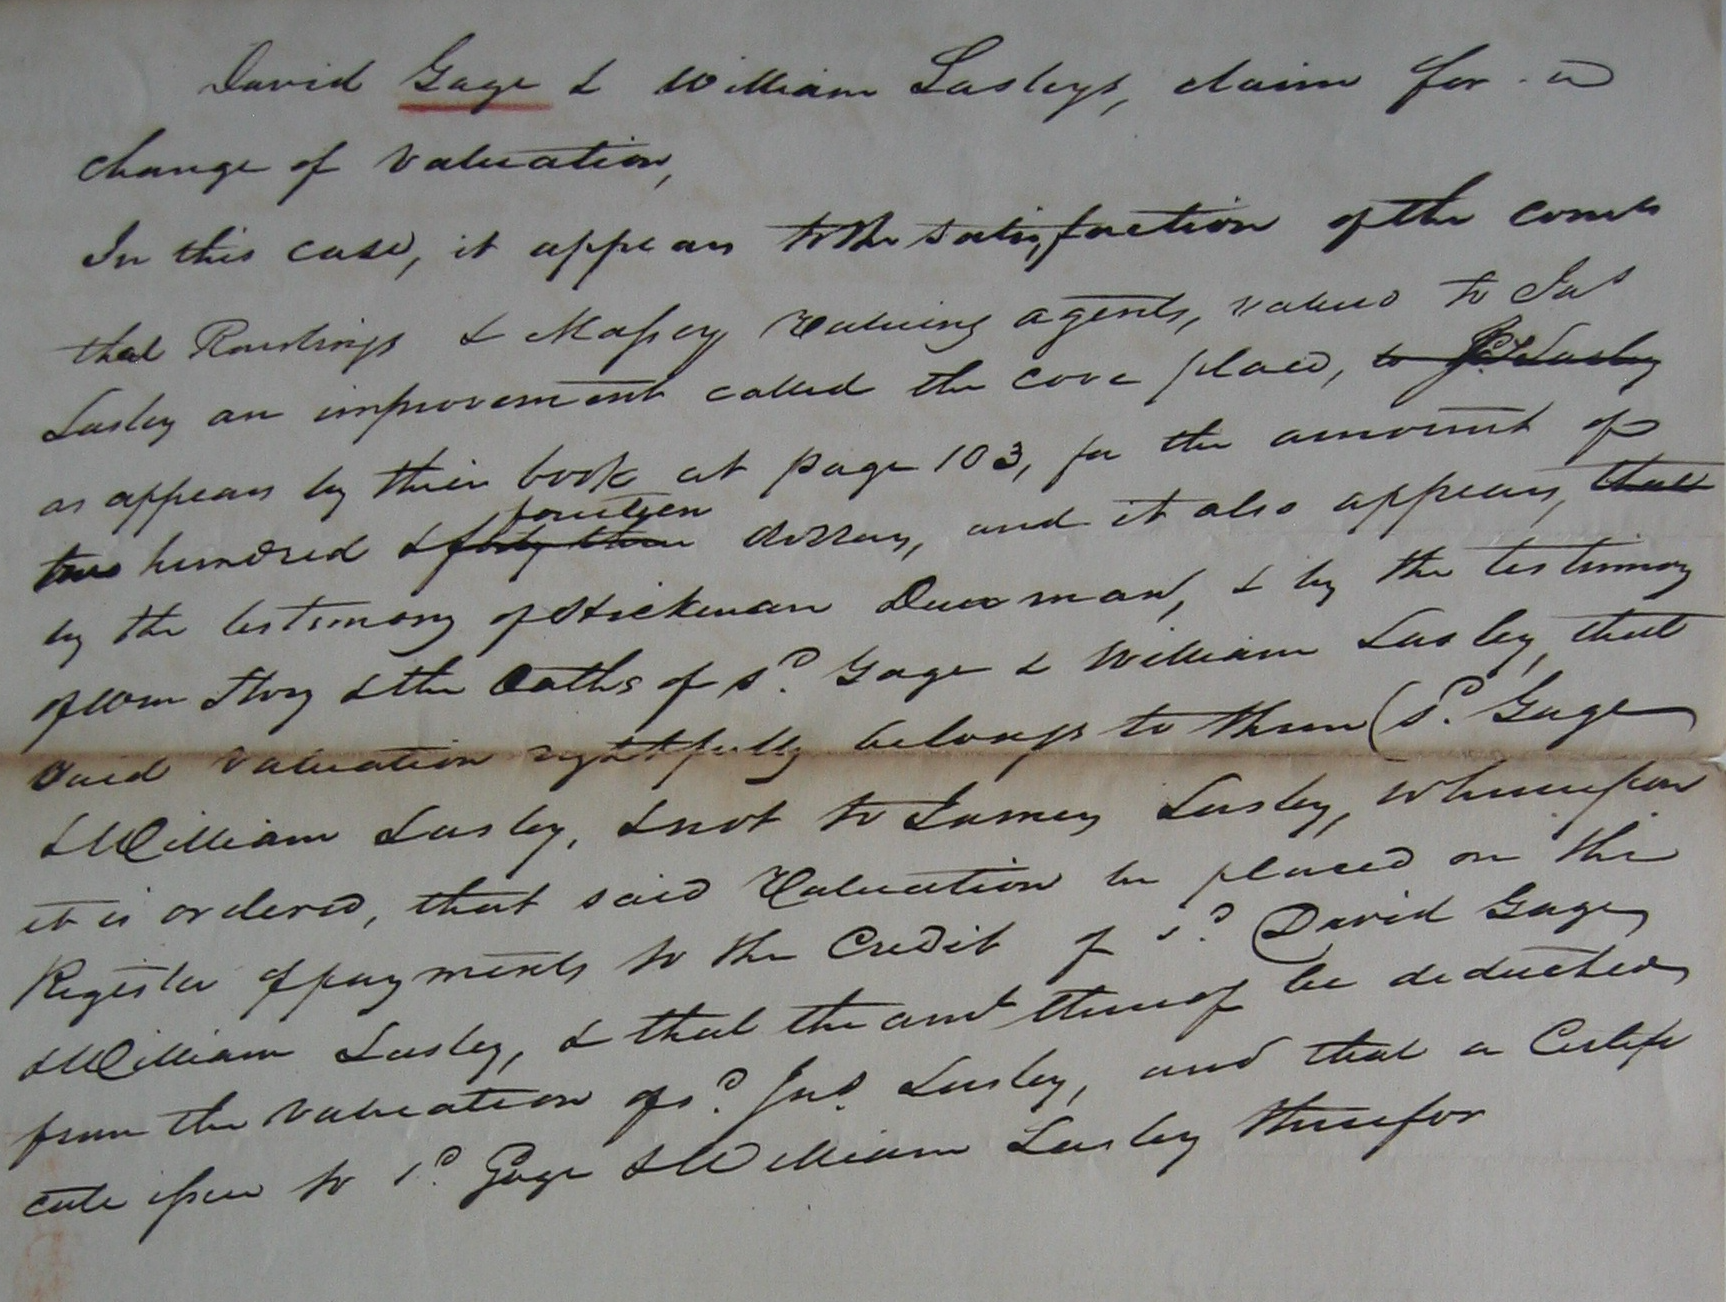 David Gage & William Lasleys, claim for a
change of valuation,
In this case, it appears to the satisfaction of the comrs
that Rawlings & Massey Valuing agents, valued to Jas
Lasley an improvement called the cove place, to Jas Lasley
as appears by their book at page 103, for the amount of
fourteen
two hundred & forty three dollars, and it also appears, that
by the testimony of Hickman, & by the testimony
of Wm Thos & the Oaths of sd. Gage & William Lasley, that
said valuation rightfully belongs to them (sd. Gage
& William Lasley, & not to James Lasley, whereupon
it is ordered, that said Valuation be placed on the
Register of payments to the Credit of sd. David Gage
& William Lasley, & that the amt thereof be deducted
from the valuation of sd. Jas. Lasley, and that a Certifi
cate issue to sd. Gage & William Lasley therefor